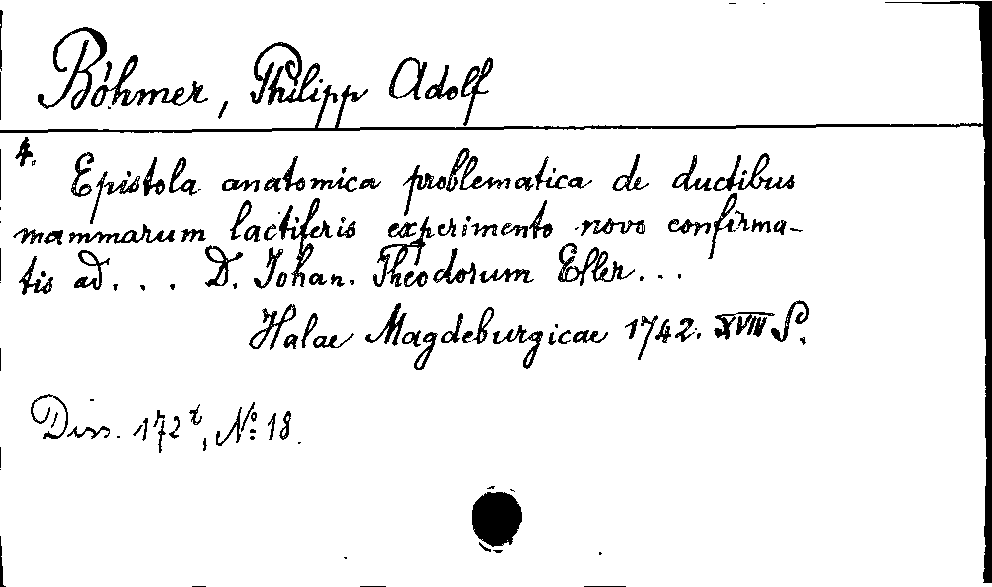 Böhmer, Philipp Adolf
4.
Epistola anatomica problematica de ductibus
mammarum lactiferis experimento novo confirma-
tis ad . . . D. Johan. Theodorum Eller . . .
Halae Magdeburgicae 1742. XVIII S.
Diss. 172 t, No: 18.